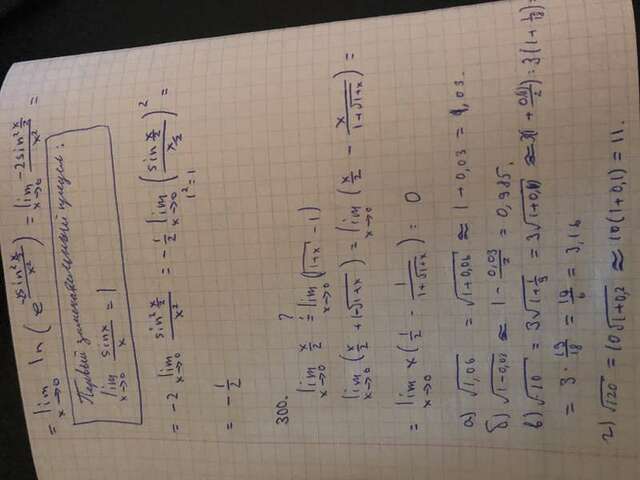 = lim x→0 ln ( e^(-2sin² x/2 / x²) ) = lim x→0 -2sin² x/2 / x² =
Первый замечательный предел:
lim x→0 sinx / x = 1
= -2 lim x→0 sin² x/2 / x² = - 1/2 lim x→0 ( sin x/2 / x/2 )² =
1² = 1
= - 1/2
300.
lim x→0 x/2 =? lim x→0 (√1+x - 1)
lim x→0 ( x/2 + 1-√1+x ) = lim x→0 ( x/2 - x / 1+√1+x ) =
= lim x→0 x ( 1/2 - 1 / 1+√1+x ) = 0
а) √1,06 = √1+0,06 ≈ 1+0,03 = 1,03.
б) √1-0,03 ≈ 1 - 0,03/2 = 0,985.
в) √10 = 3√1+1/9 = 3√1+0,11 ≈ 3(1 + 0,11/2) = 3(1 + 1/18) =
= 3 · 19/18 = 19/6 = 3,16
г) √120 = 10√1+0,2 ≈ 10(1+0,1) = 11.